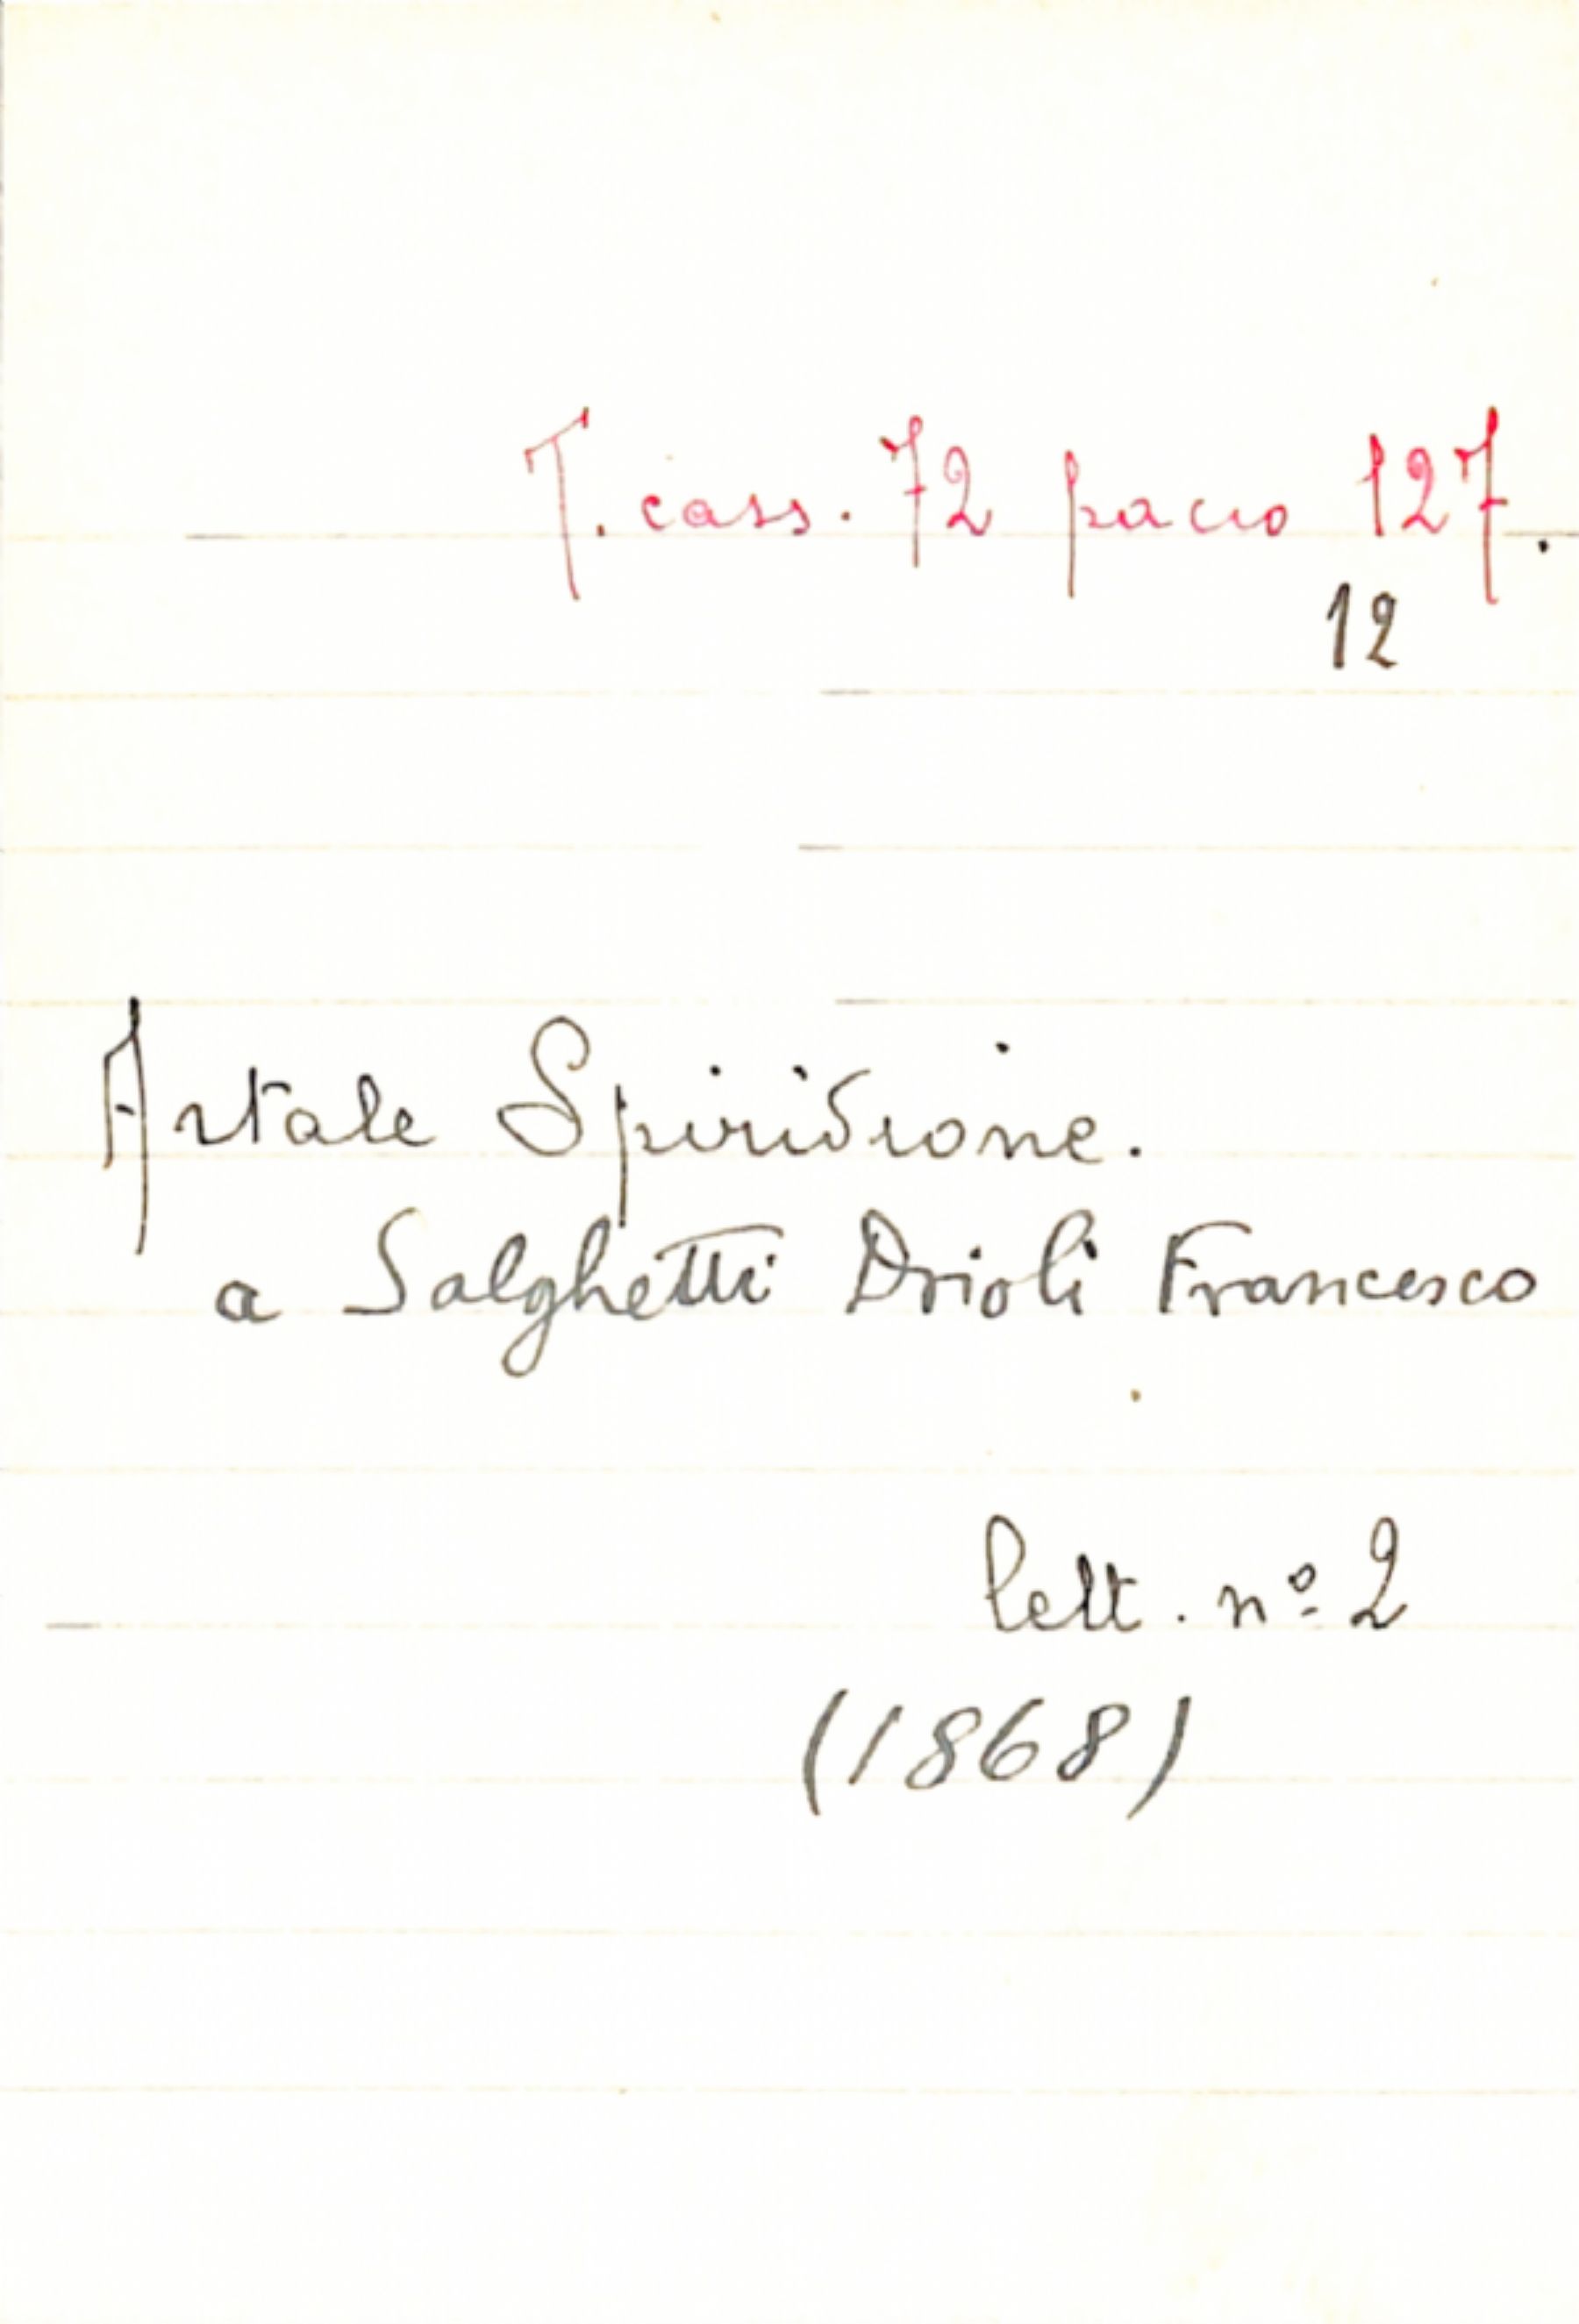 T. cass. 72 pacco 127.
12
Artale Spiridione.
a Salghetti Drioli Francesco
lett. nº 2
(1868)